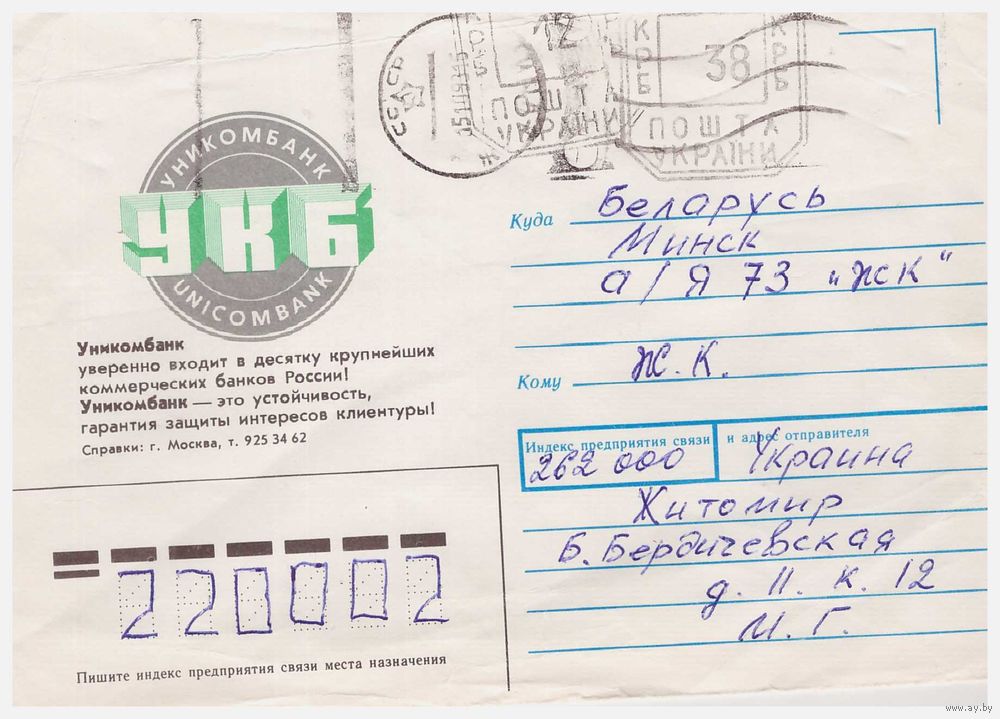 СССР
12
ПОШТА
УКРАЇНИ
КРБ
38
КРБ
ПОШТА
УКРАЇНИ
УНИКОМБАНК
УКБ
UNICOMBANK
Уникомбанк
уверенно входит в десятку крупнейших
коммерческих банков России!
Уникомбанк — это устойчивость,
гарантия защиты интересов клиентуры!
Справки: г. Москва, т. 925 34 62
Куда Беларусь
Минск
а/я 73 „ЖСК"
Кому Ж.К.
Индекс предприятия связи и адрес отправителя
262 000 Украина
Житомир
Б. Бердичевская
д. 11. к. 12
М. Г.
220002
Пишите индекс предприятия связи места назначения
www.ay.by